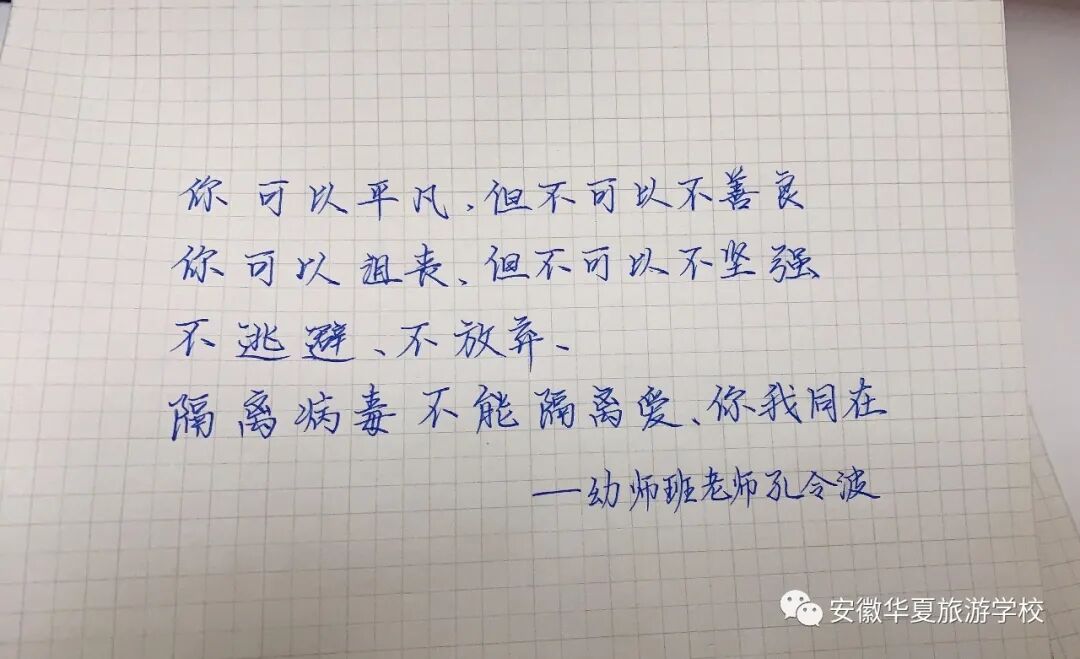 你可以平凡、但不可以不善良
你可以沮丧、但不可以不坚强
不逃避、不放弃、
隔离病毒不能隔离爱、你我同在
——幼师班老师孔令波
安徽华夏旅游学校